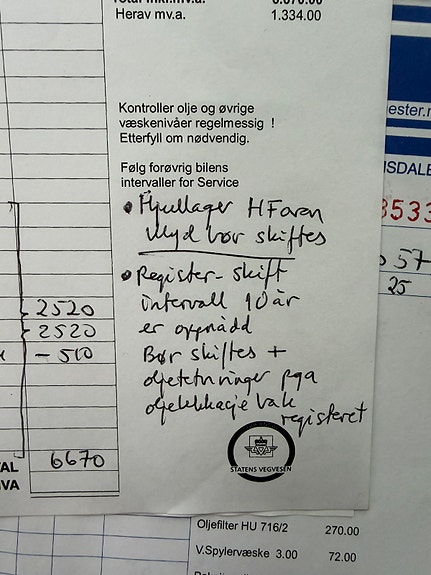 Total inkl.mv.a. 6.670.00
Herav mv.a. 1.334.00
Kontroller olje og øvrige
væskenivåer regelmessig !
Etterfyll om nødvendig.
Følg forøvrig bilens
intervaller for Service
• Hjullager HForan
Ulyd bør skiftes
• Register-skift
intervall 10 år
er oppnådd
Bør skiftes +
oljetetninger pga
oljelekkasje bak
registeret
2520
2520
- 510
6670
TAL
MVA
STATENS VEGVESEN
ester.n
NSDALE
3533
57
25
Oljefilter HU 716/2 270.00
V.Spylervæske 3.00 72.00